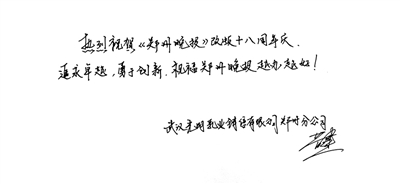 热烈祝贺《郑州晚报》改版十八周年庆.
追求卓越,勇于创新.祝福郑州晚报越办越好!
武汉光明乳业销售有限公司郑州分公司